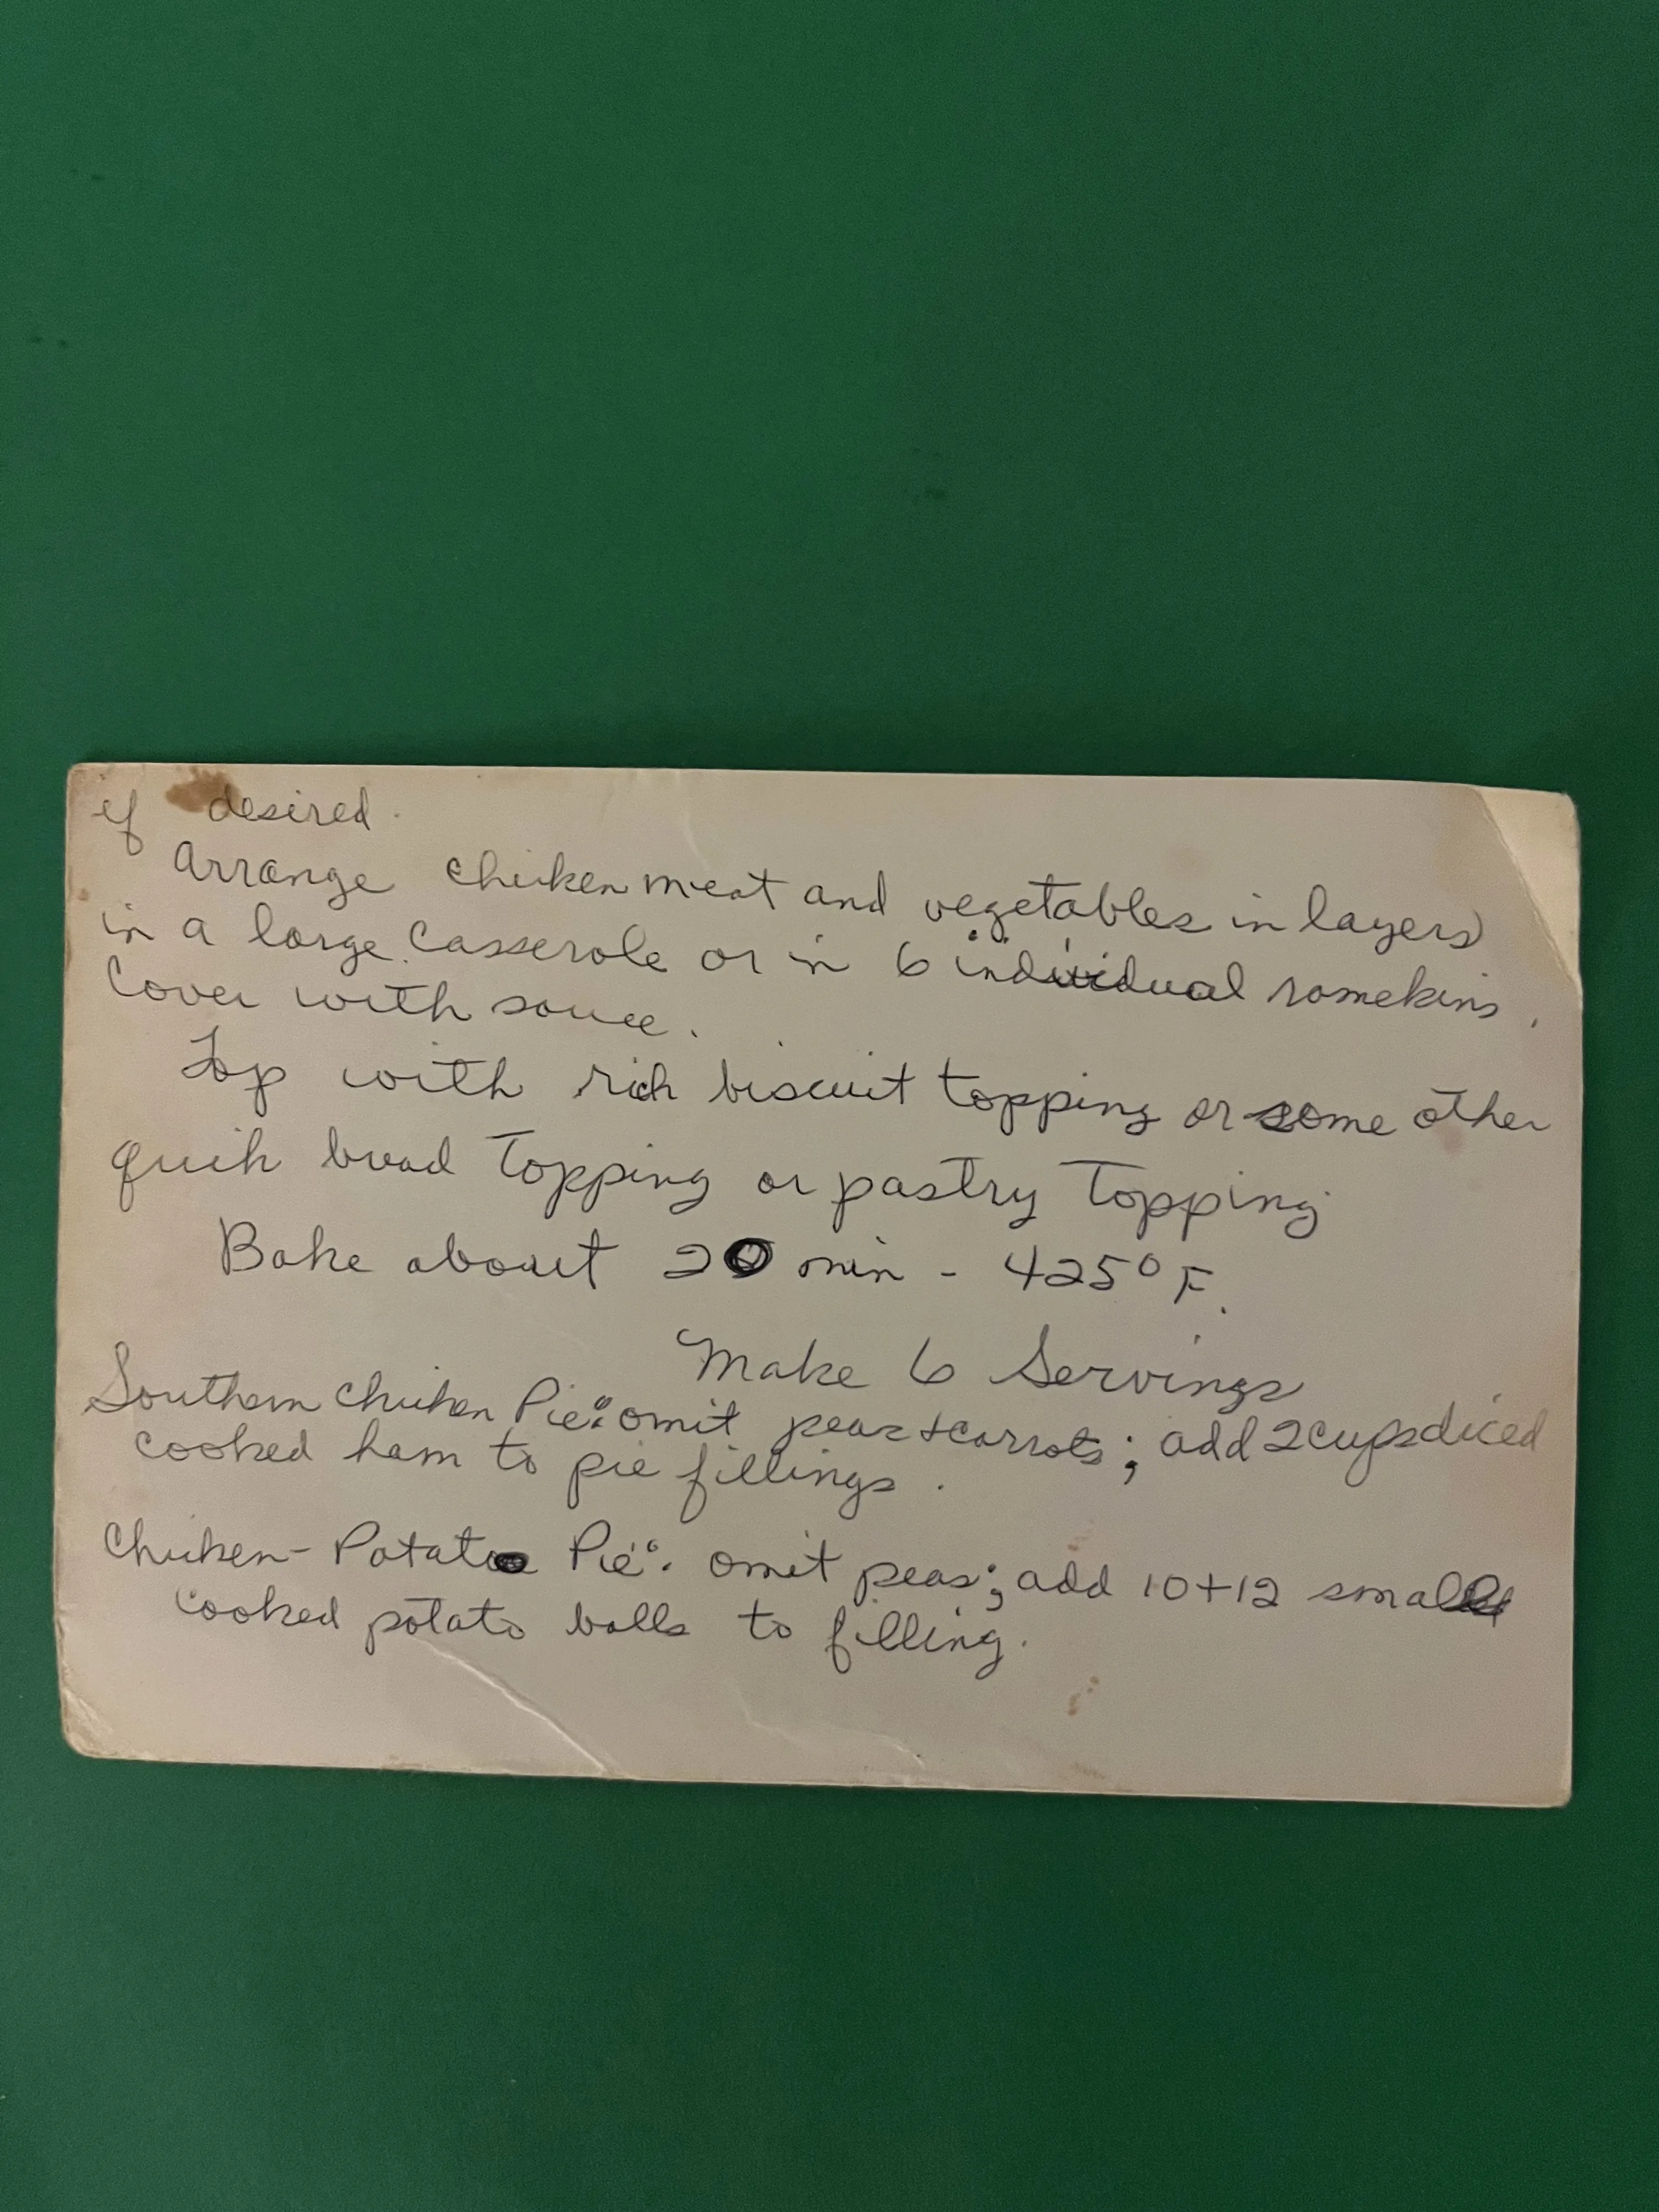 if desired.
Arrange chicken meat and vegetables in layers
in a large casserole or in 6 individual ramekins.
Cover with sauce.
Top with rich biscuit topping or some other
quick bread topping or pastry topping.
Bake about 20 min - 425° F.
Make 6 Servings
Southern Chicken Pie: omit peas & carrots; add 2 cups diced
cooked ham to pie fillings.
Chicken-Potato Pie: omit peas; add 10+12 small
cooked potato balls to filling.